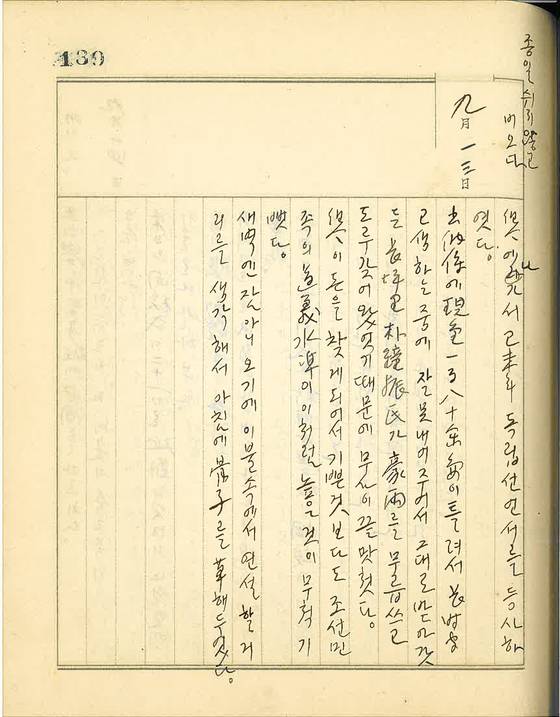 189
종일 쉬지않고
비오다
九月一三日
에 서 己未年 독립선언서를 등사하
엿다.
出納係에 現金一百八十余 이 틀려서 長時間
고생하는 중에 잘못내여주어서 그대로 받아갓
든 長坪里 朴鐘振氏가 豪雨를 무릅쓰고
도루갖어 왔엇기 때문에 무사이 끝맛첫다.
이 돈을 찾게되여서 기쁜것보다도 조선민
족의 道義水準이 이처럼 높은것이 무척 기
뻣다.
새벽엔 잠 아니오기에 이불속에서 연설할 거
리를 생각해서 아침에 骨子를 草해두었다.